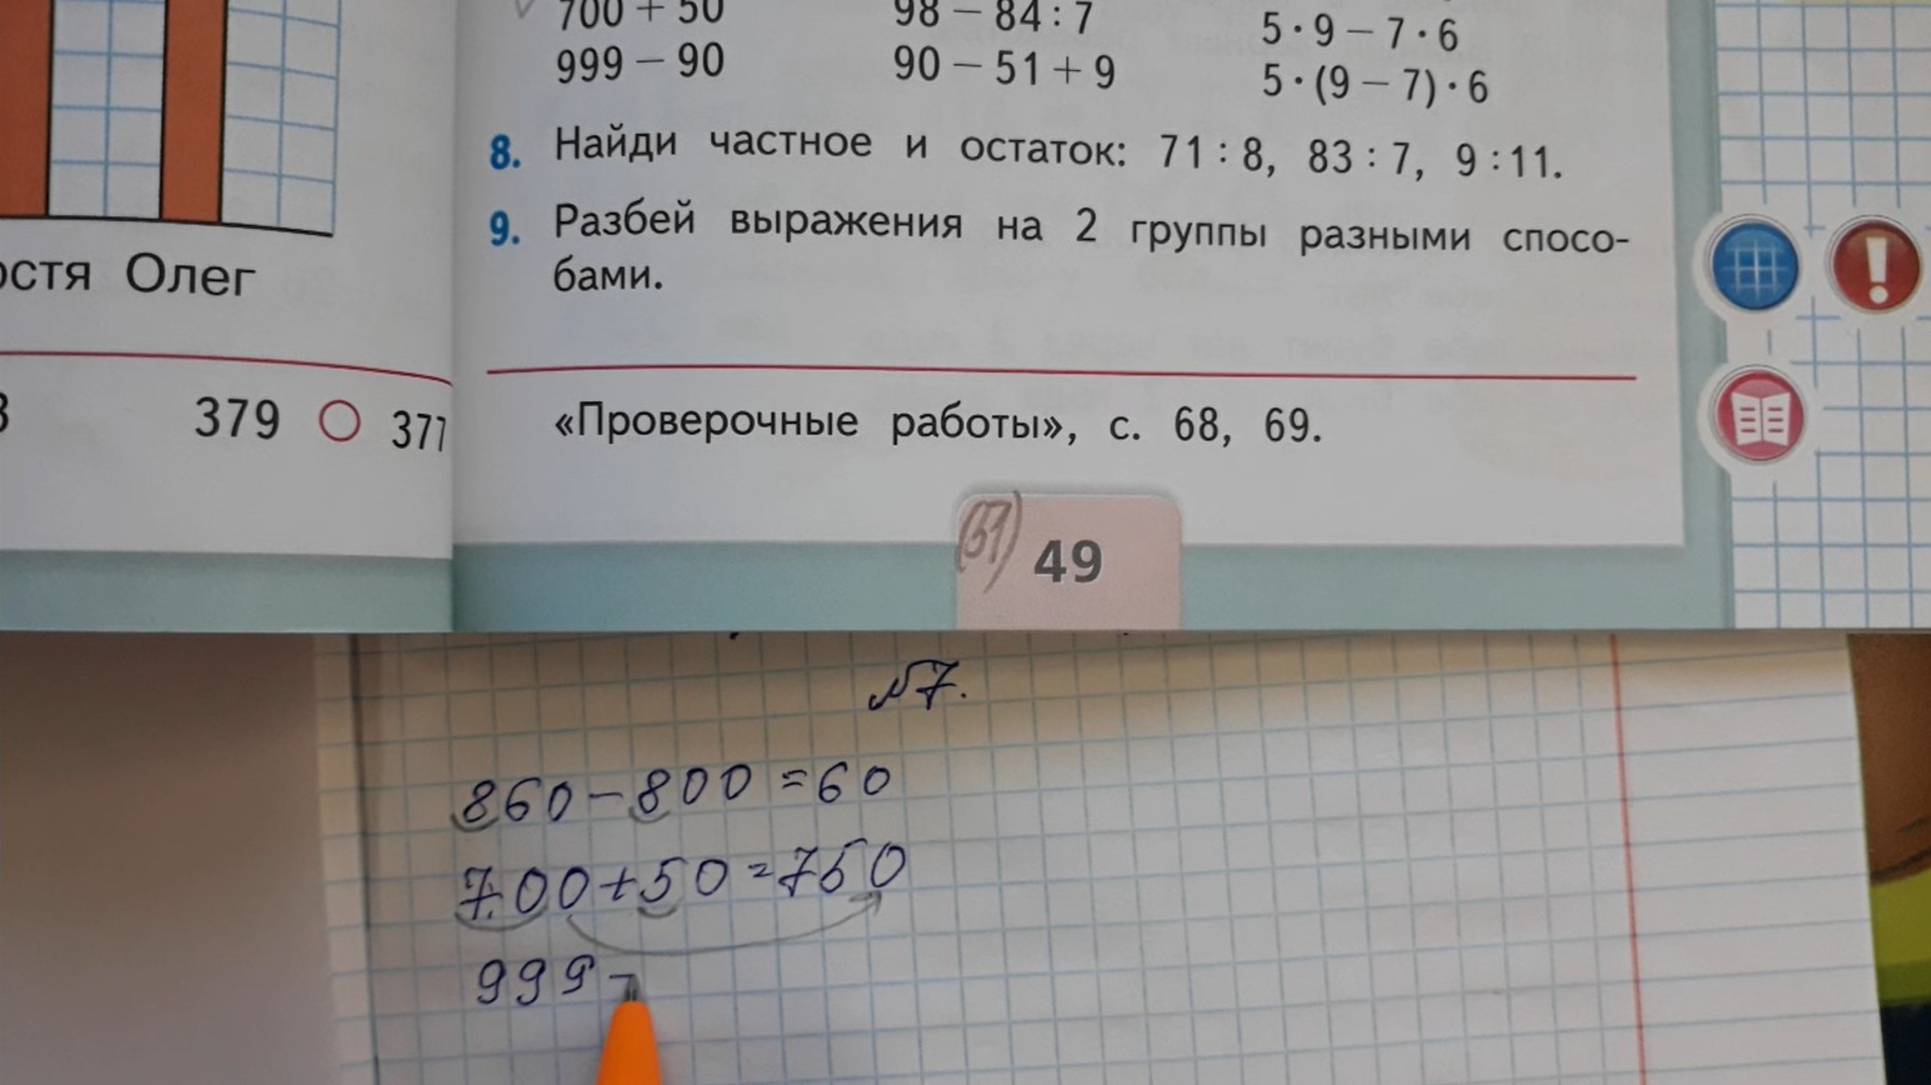 700 + 50
999 − 90
98 − 84 : 7
90 − 51 + 9
5 · 9 − 7 · 6
5 · (9 − 7) · 6
8. Найди частное и остаток: 71 : 8, 83 : 7, 9 : 11.
9. Разбей выражения на 2 группы разными спосо-
бами.
остя Олег
379 ○ 377
«Проверочные работы», с. 68, 69.
(51)
49
№7.
860−800=60
700+50=750
999−